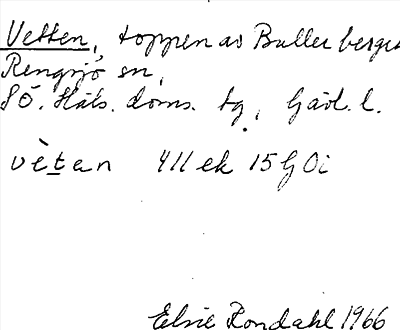 Vetten, toppen av Bullerberget
Rengsjö sn,
SÖ. Häls. doms. tg, Gävl. l.
vètan 411 ek 15 G Oi
Elsie Rondahl 1966